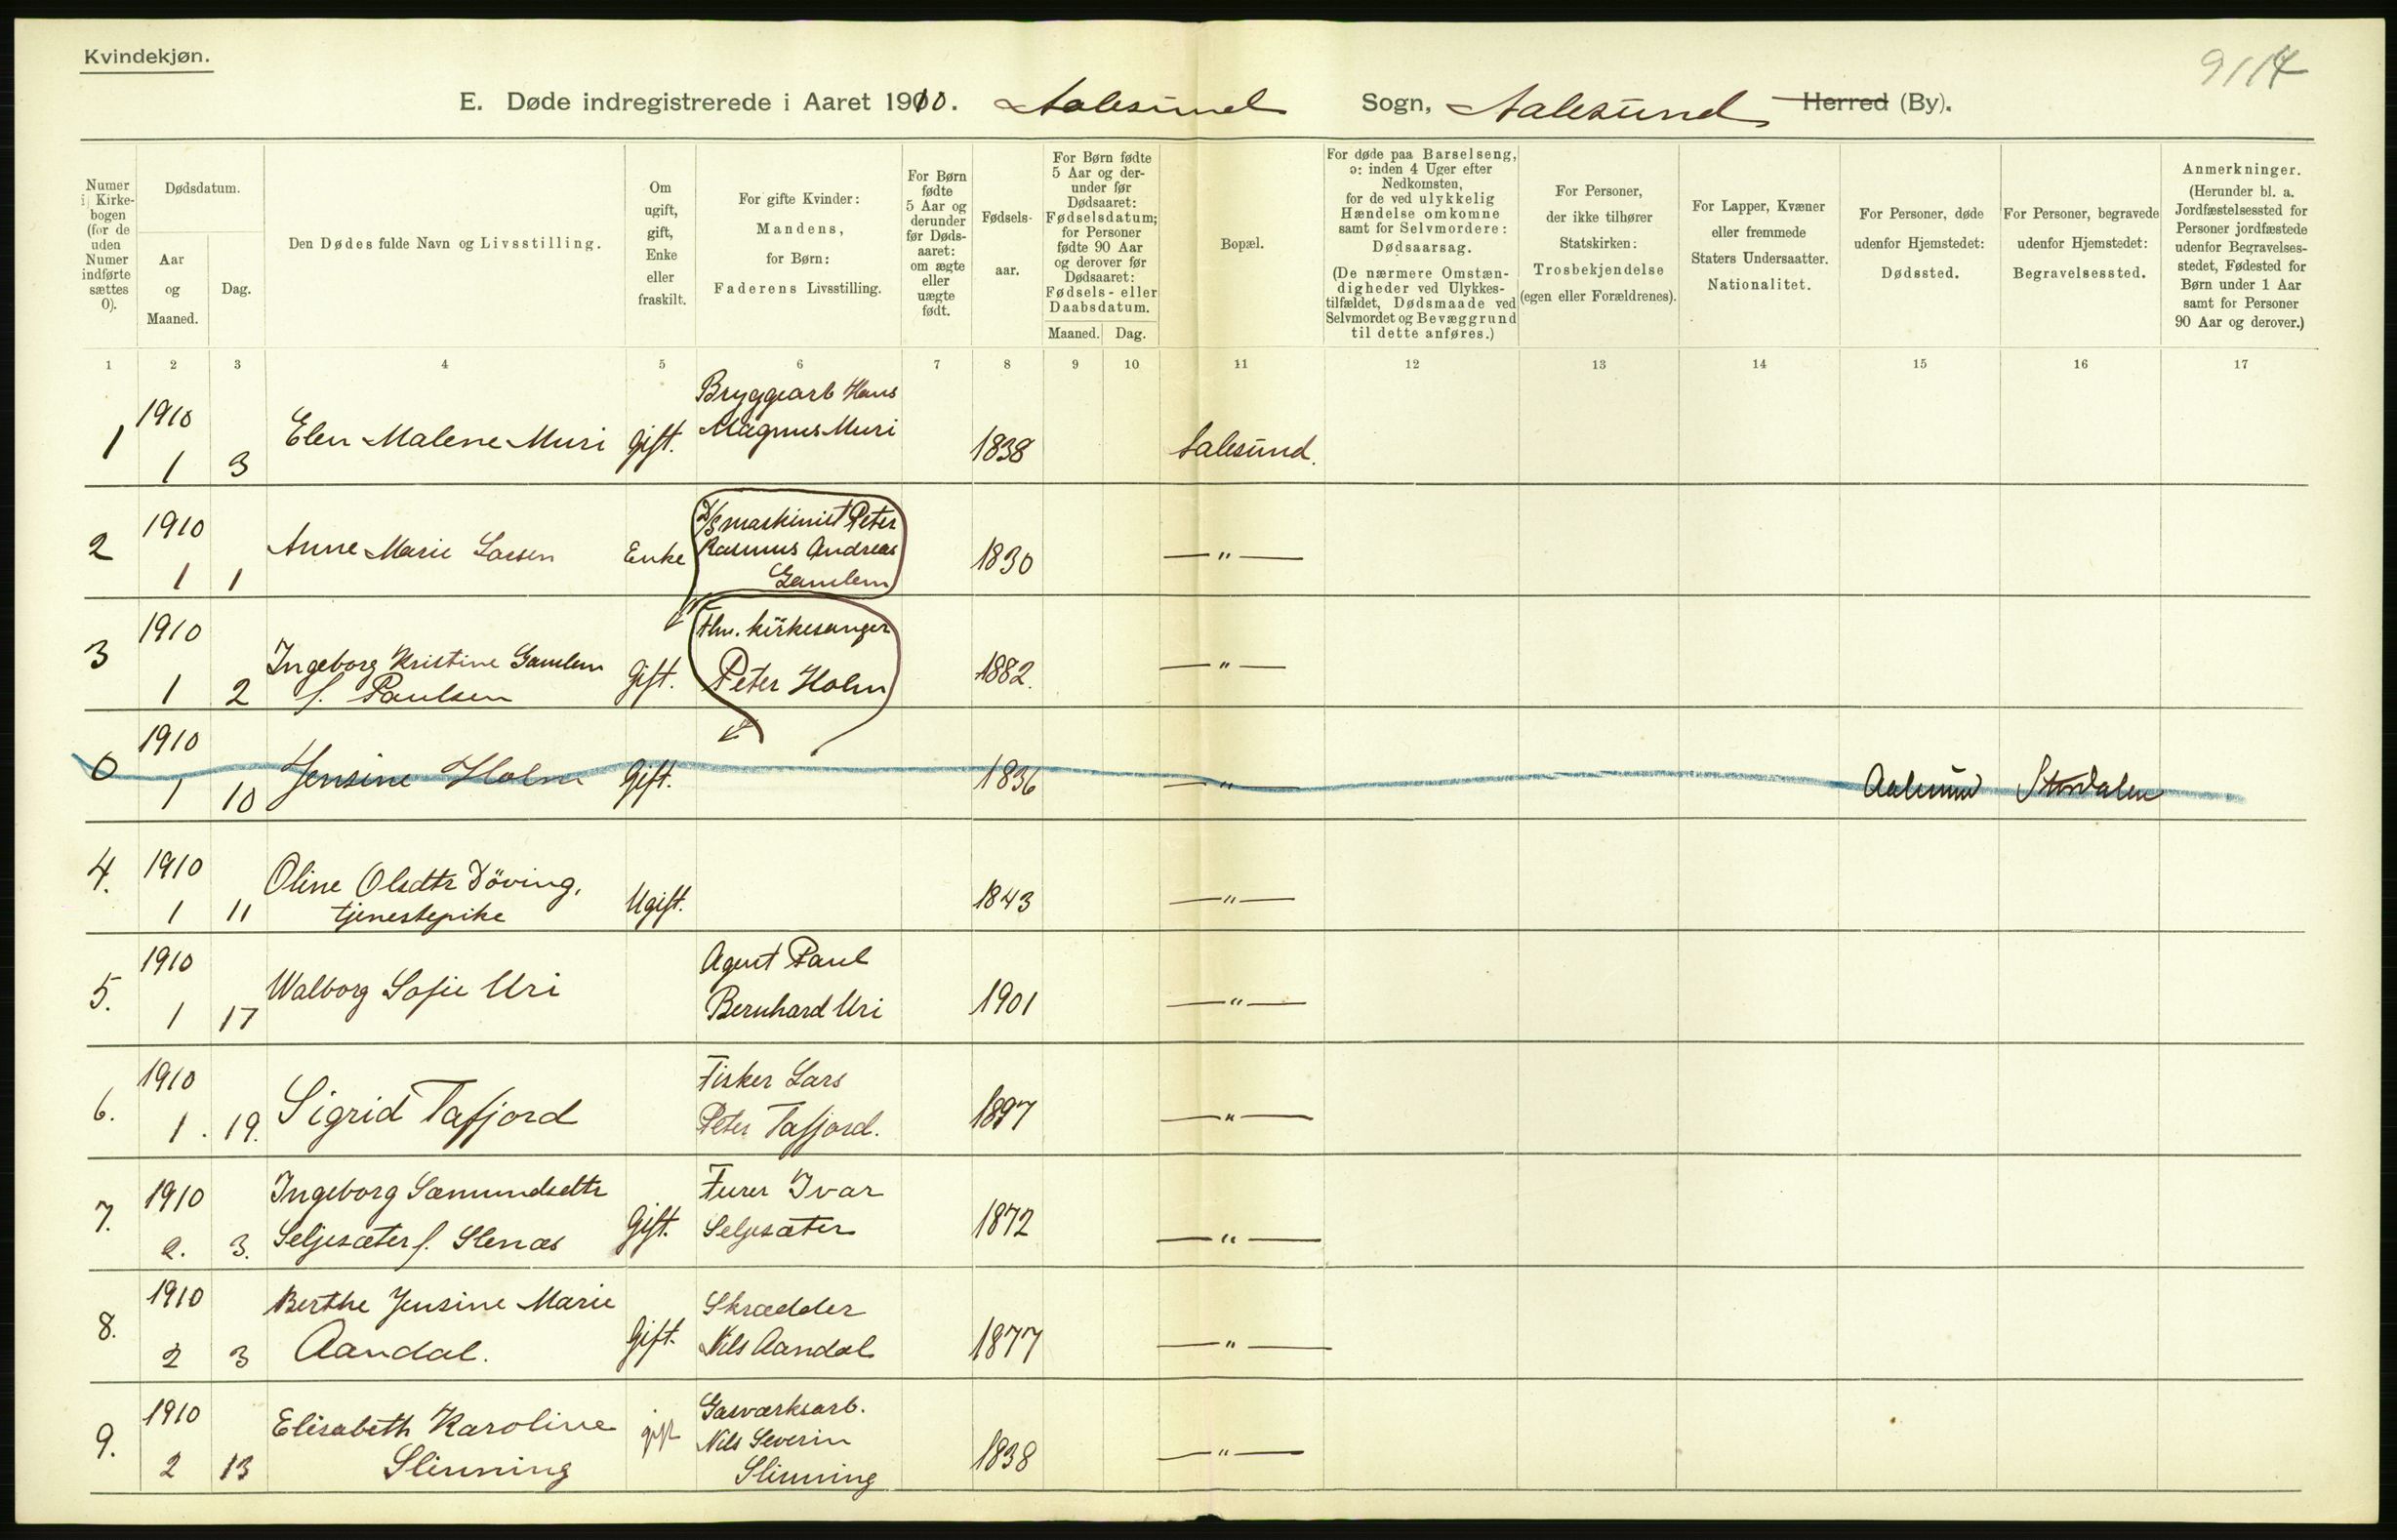 Kvindekjøn.
9114
E. Døde indregistrerede i Aaret 1910. Aalesund Sogn, Aalesund Herred (By).
Numer i Kirke-bogen (for de uden Numer indførte sættes 0).
Dødsdatum.
Aar og Maaned.
Dag.
Den Dødes fulde Navn og Livsstilling.
Om ugift, gift, Enke eller fraskilt.
For gifte Kvinder: Mandens, for Børn: Faderens Livsstilling.
For Børn fødte 5 Aar og derunder før Døds-aaret: om ægte eller uægte født.
Fødsels-aar.
For Børn fødte 5 Aar og der-under før Dødsaaret: Fødselsdatum; for Personer fødte 90 Aar og derover før Dødsaaret: Fødsels- eller Daabsdatum.
Maaned. Dag.
Bopæl.
For døde paa Barselseng, ɔ: inden 4 Uger efter Nedkomsten, for de ved ulykkelig Hændelse omkomne samt for Selvmordere: Dødsaarsag.
(De nærmere Omstæn-digheder ved Ulykkes-tilfældet, Dødsmaade ved Selvmordet og Bevæggrund til dette anføres.)
For Personer, der ikke tilhører Statskirken: Trosbekjendelse (egen eller Forældrenes).
For Lapper, Kvæner eller fremmede Staters Undersaatter. Nationalitet.
For Personer, døde udenfor Hjemstedet: Dødssted.
For Personer, begravede udenfor Hjemstedet: Begravelsessted.
Anmerkninger. (Herunder bl. a. Jordfæstelsessted for Personer jordfæstede udenfor Begravelses-stedet, Fødested for Børn under 1 Aar samt for Personer 90 Aar og derover.)
1 2 3 4 5 6 7 8 9 10 11 12 13 14 15 16 17
1 1910 1 3 Elen Malene Muri gift. Bryggearb Hans Magnus Muri 1838 Aalesund.
2 1910 1 1 Anne Marie Larsen Enke D/S maskinist Peter Rasmus Andreas Gamlem 1830 —"—
3 1910 1 2 Ingeborg Kristine Gamlem f. Paulsen Gift. Fhv. kirkesanger Peter Holm 1882. —"—
0 1910 1 10 Jensine Holm Gift. 1836 —"— Aalesund Stordalen
4. 1910 1 11 Oline Olsdtr Döving, tjenestepike Ugift. 1843 —"—
5. 1910 1 17 Walborg Sofie Uri Agent Paul Bernhard Uri 1901 —"—
6. 1910 1. 19. Sigrid Tafjord Fisker Lars Peter Tafjord. 1897 —"—
7. 1910 2. 3. Ingeborg Samundsdtr Seljesæter f. Slenæs Gift. Furer Ivar Seljesæter 1872 —"—
8. 1910 2 3 Berthe Jensine Marie Aandal. Gift. Skrædder Nils Aandal 1877 —"—
9. 1910 2 13 Elisabeth Karoline Slinning gift Gasværksarb. Nils Severin Slinning 1838 —"—